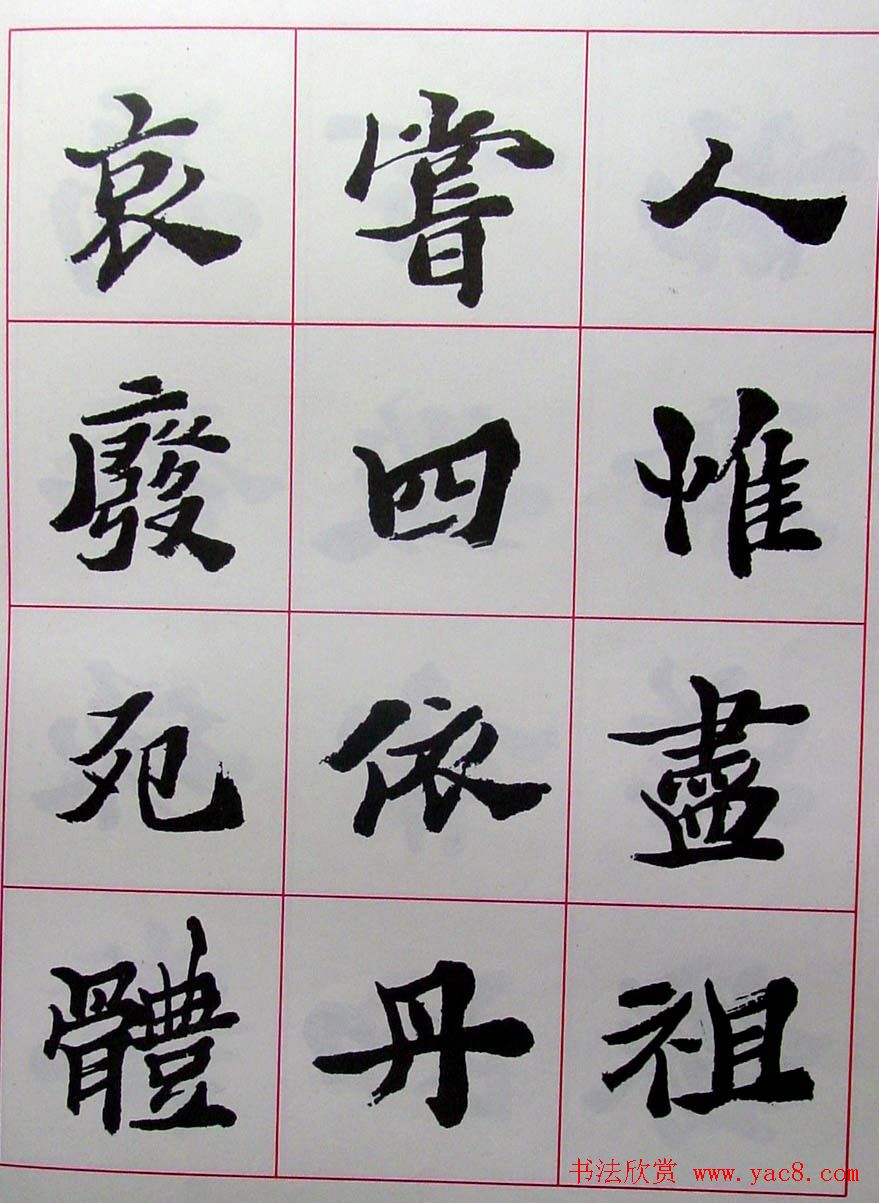 人惟盡祖
嘗四依丹
哀廢死體
书法欣赏 www.yac8.com